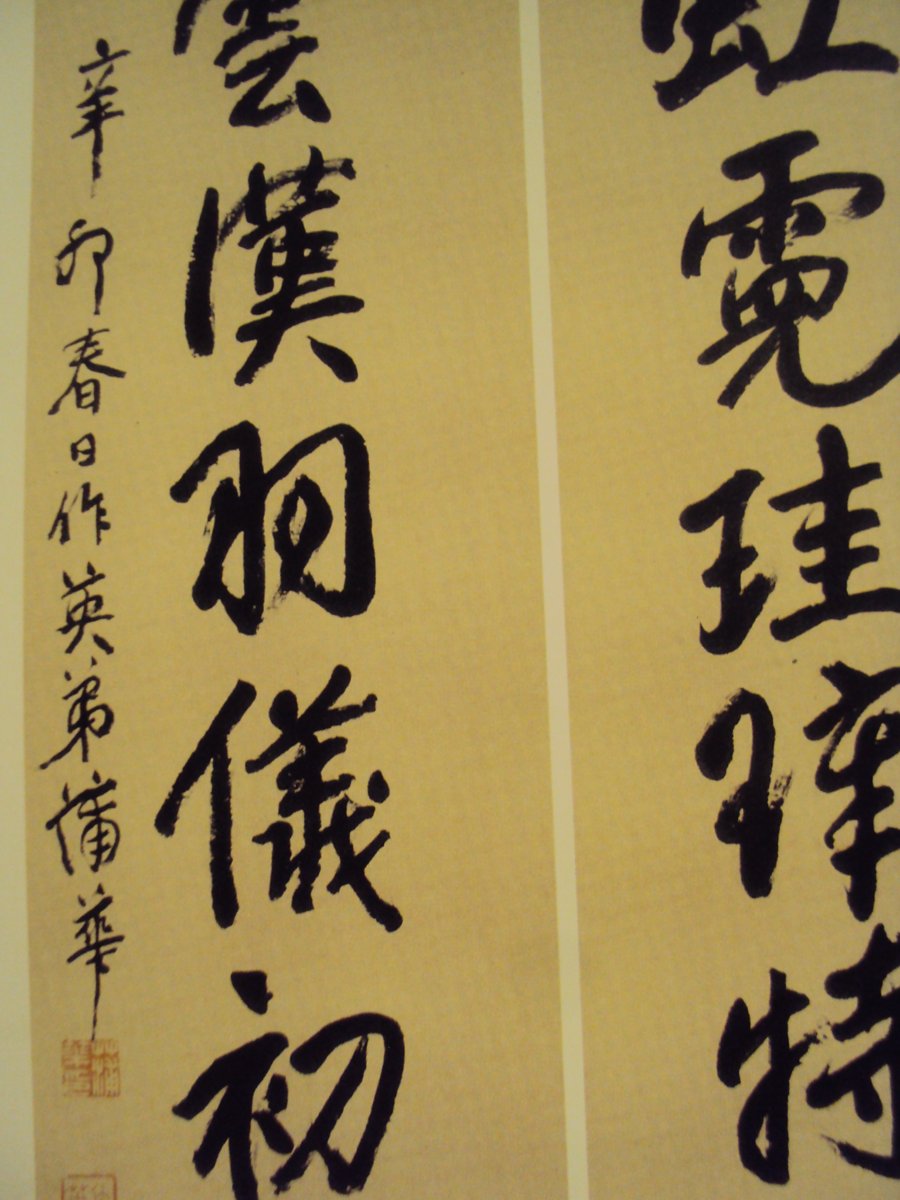 虹霓珪璋特
雲漢羽儀初
辛卯春日作英弟蒲華